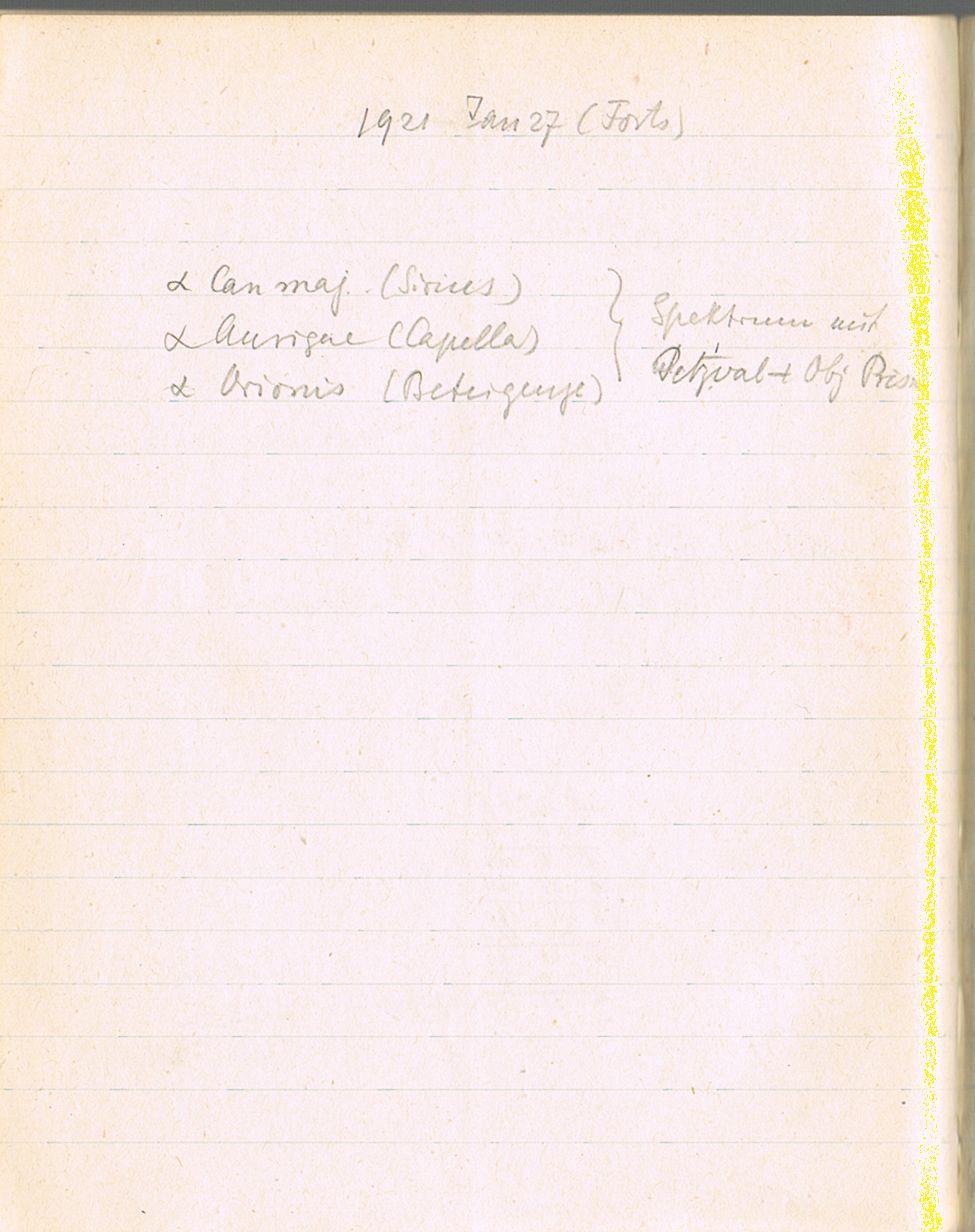 1921 Jan 27 (Forts)
α Can maj. (Sirius)
α Aurigae (Capella)
α Orionis (Beteigeuze)
} Spektrum mit
Petzval + Obj Prism